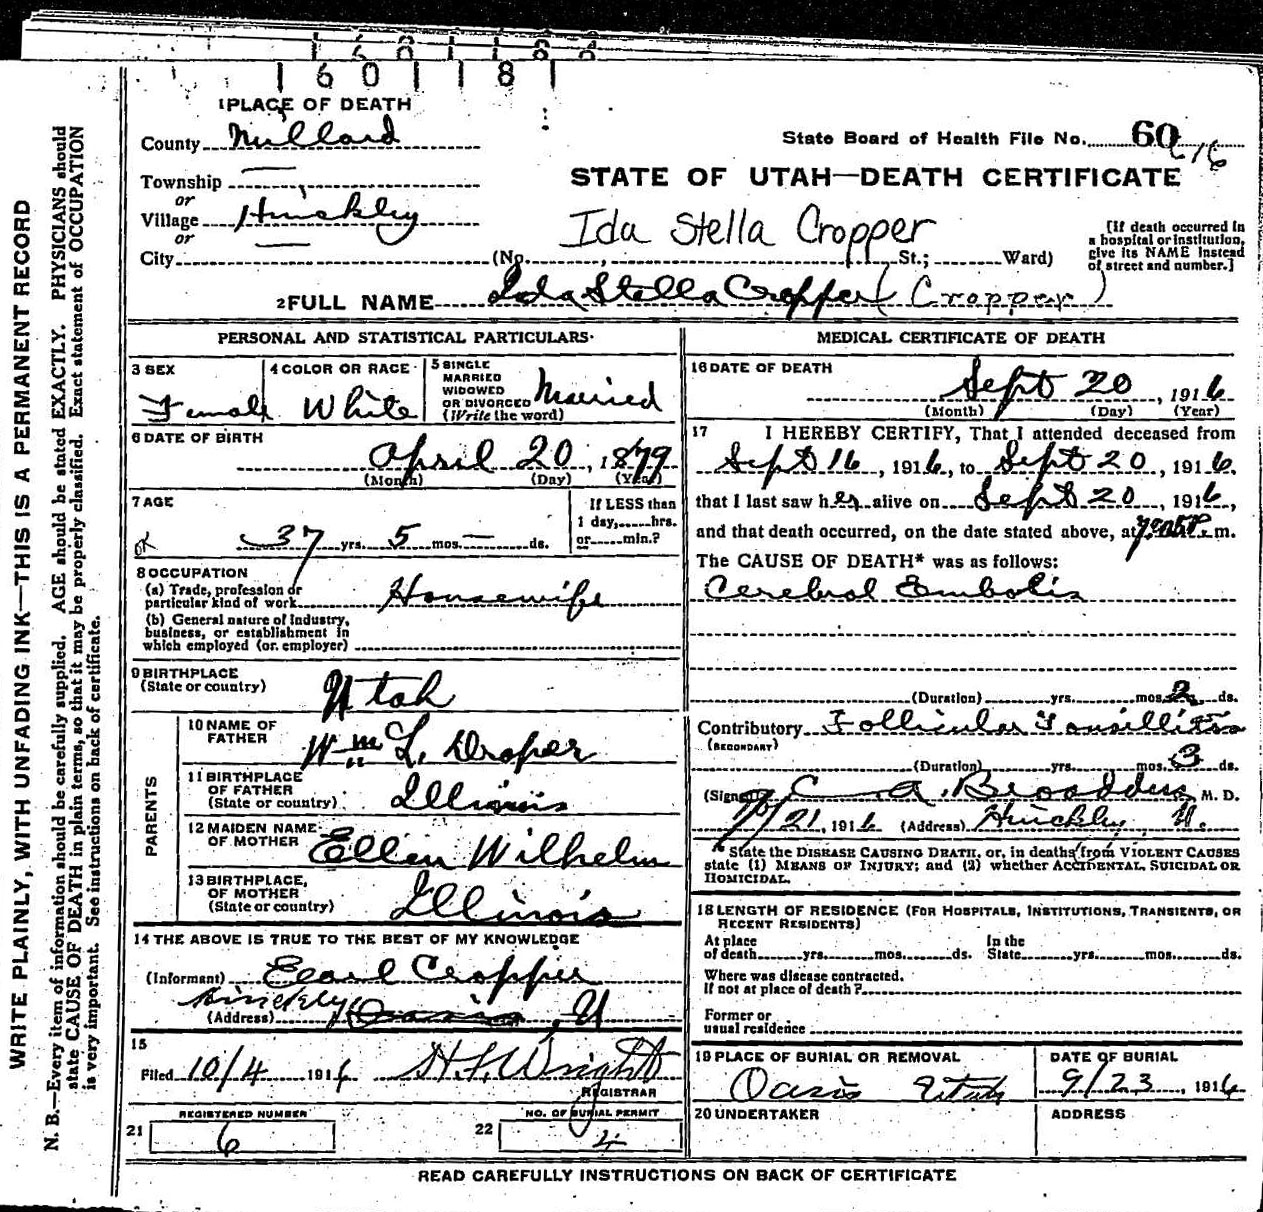 1601181
1 PLACE OF DEATH
County Millard
State Board of Health File No. 60 616
Township —
or
Village Hinckley
or
City —
STATE OF UTAH—DEATH CERTIFICATE
Ida Stella Cropper
(No. , St.; Ward)
[If death occurred in
a hospital or institution,
give its NAME instead
of street and number.]
2 FULL NAME Ida Stella Cropper (Cropper)
PERSONAL AND STATISTICAL PARTICULARS
3 SEX
Female
4 COLOR OR RACE
White
5 SINGLE
MARRIED
WIDOWED
OR DIVORCED
(Write the word)
Married
6 DATE OF BIRTH
April 20, 1879
(Month) (Day) (Year)
7 AGE
OK 37 yrs. 5 mos. — ds.
If LESS than
1 day,.....hrs.
or.....min.?
8 OCCUPATION
(a) Trade, profession or
particular kind of work Housewife
(b) General nature of Industry,
business, or establishment in
which employed (or employer)
9 BIRTHPLACE
(State or country) Utah
PARENTS
10 NAME OF
FATHER Wm L. Draper
11 BIRTHPLACE
OF FATHER
(State or country) Illinois
12 MAIDEN NAME
OF MOTHER Ellen Wilhelm
13 BIRTHPLACE,
OF MOTHER
(State or country) Illinois
14 THE ABOVE IS TRUE TO THE BEST OF MY KNOWLEDGE
(Informant) Earl Cropper
Hinckley
(Address) Oasis, U
15
Filed 10/4 1916 H.F. Wright
REGISTRAR
REGISTERED NUMBER
21 6
NO. OF BURIAL PERMIT
22 4
MEDICAL CERTIFICATE OF DEATH
16 DATE OF DEATH
Sept 20, 1916
(Month) (Day) (Year)
17 I HEREBY CERTIFY, That I attended deceased from
Sept 16, 1916, to Sept 20, 1916,
that I last saw her alive on Sept 20, 1916,
and that death occurred, on the date stated above, at m.
The CAUSE OF DEATH* was as follows:
Cerebral Embolis
(Duration) yrs. mos. 2 ds.
Contributory Follicular Tonsillitis
(SECONDARY)
(Duration) yrs. mos. 3 ds.
(Signed) C. A. Broaddus, M. D.
9/21, 1916 (Address) Hinckley U.
*State the DISEASE CAUSING DEATH, or, in deaths from VIOLENT CAUSES
state (1) MEANS OF INJURY; and (2) whether ACCIDENTAL, SUICIDAL OR
HOMICIDAL.
18 LENGTH OF RESIDENCE (FOR HOSPITALS, INSTITUTIONS, TRANSIENTS, OR
RECENT RESIDENTS)
At place
of death yrs. mos. ds.
In the
State yrs. mos. ds.
Where was disease contracted.
If not at place of death?
Former or
usual residence
19 PLACE OF BURIAL OR REMOVAL
Oasis Utah
DATE OF BURIAL
9/23, 1916
20 UNDERTAKER
ADDRESS
READ CAREFULLY INSTRUCTIONS ON BACK OF CERTIFICATE
WRITE PLAINLY, WITH UNFADING INK—THIS IS A PERMANENT RECORD
N. B.—Every item of information should be carefully supplied. AGE should be stated EXACTLY. PHYSICIANS should
state CAUSE OF DEATH in plain terms, so that it may be properly classified. Exact statement of OCCUPATION
is very important. See instructions on back of certificate.